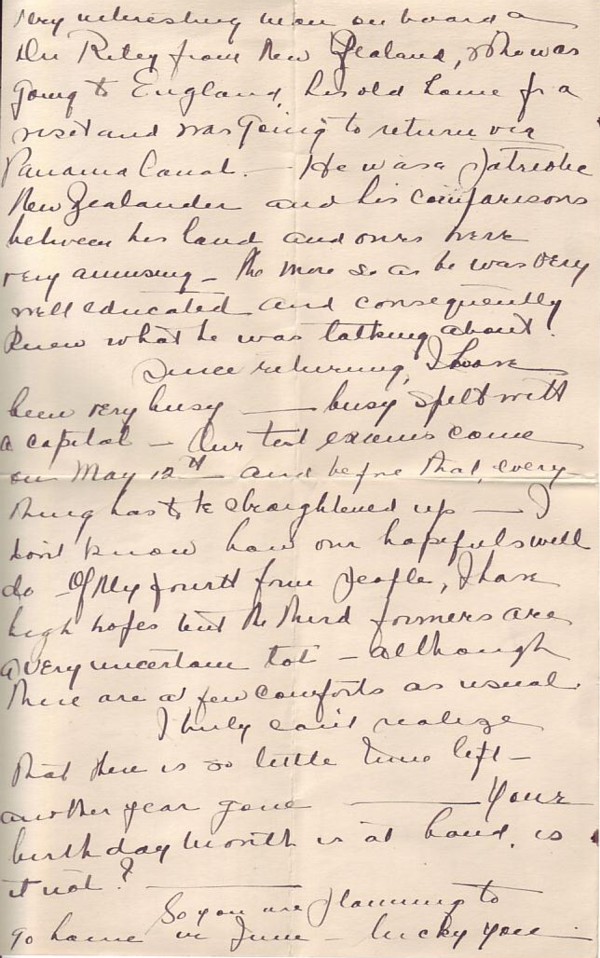 very interesting man on board a
Dr Riley from New Zealand, who was
going to England, his old home for a
visit and was going to return via
Panama Canal. — He was a patriotic
New Zealander and his comparisons
between his land and ours were
very amusing — the more so as he was very
well educated and consequently
knew what he was talking about.
Since returning, I have
been very busy — busy spelt with
a capital — Our test exams come
on May 12th — and before that, every-
thing has to be straightened up — I
don't know how our hopefuls will
do — Of my fourth form people, I have
high hopes but the third formers are
a very uncertain lot — although
there are a few comforts as usual.
I truly can't realize
that there is so little time left —
another year gone — Your
birthday month is at hand, is
it not? —
So you are planning to
go home in June — lucky you